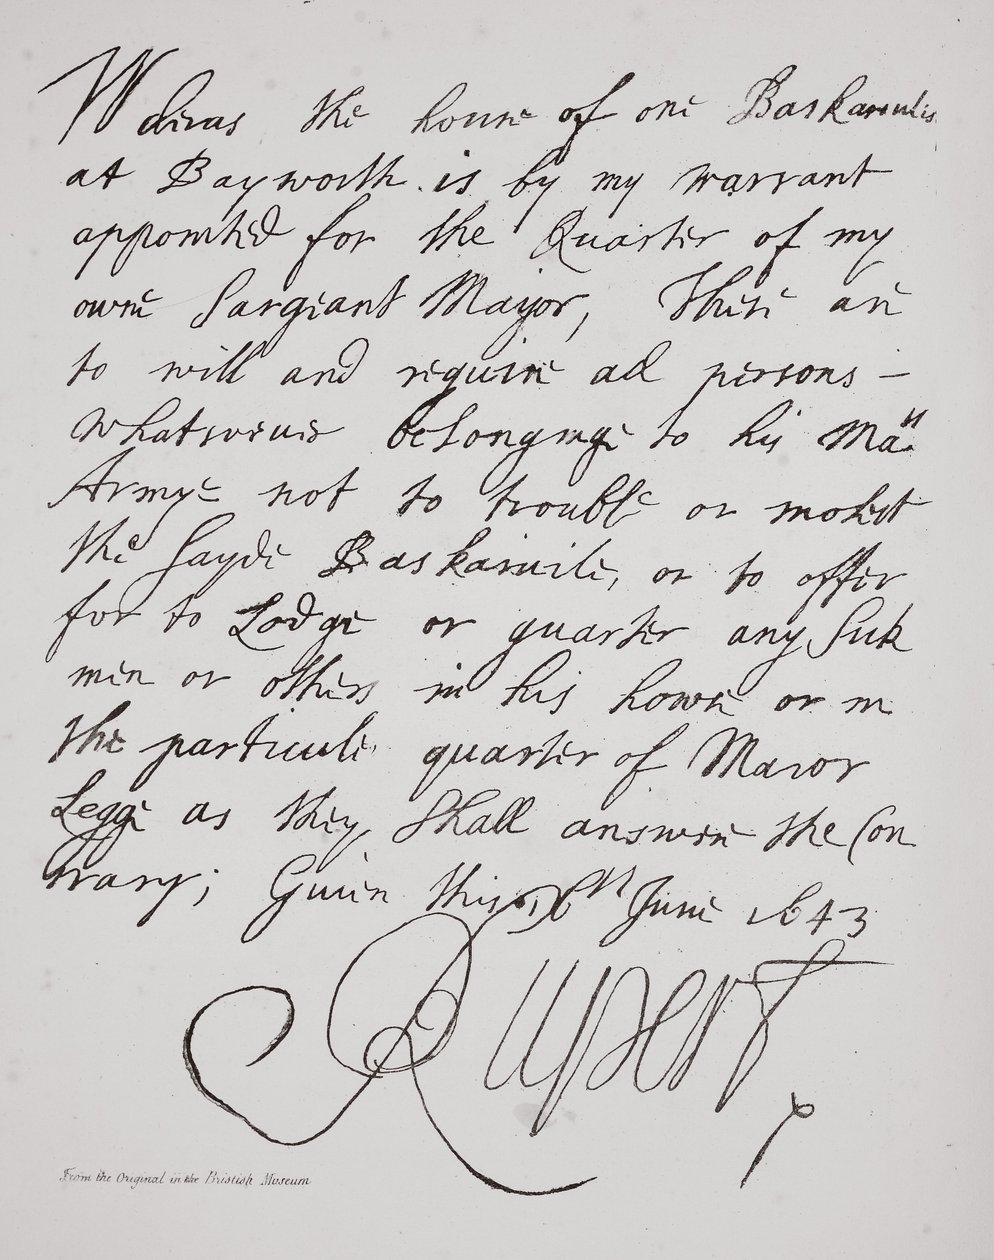 Wheras the house of one Baskarviles
at Bayworth is by my warrant
appointed for the Quarter of my
owne Sargeant Mayor, These are
to will and require all persons –
whatsoever belonginge to his Ma:ts
Armye not to trouble or molest
the sayde Baskarvile, or to offer
for to Lodge or quarter any suh
men or others in his howse or in
the particuler quarter of Maior
Legge as they shall answere the Con
trary; Given this June 1643
Rupert
From the Original in the Bristish Museum